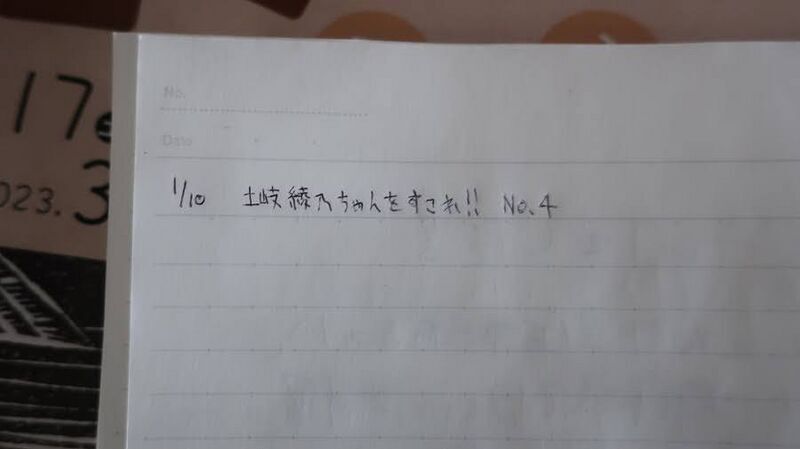 17
2023. 3
No.
Date
1/10 土岐綾乃ちゃんをすこれ!! No.4